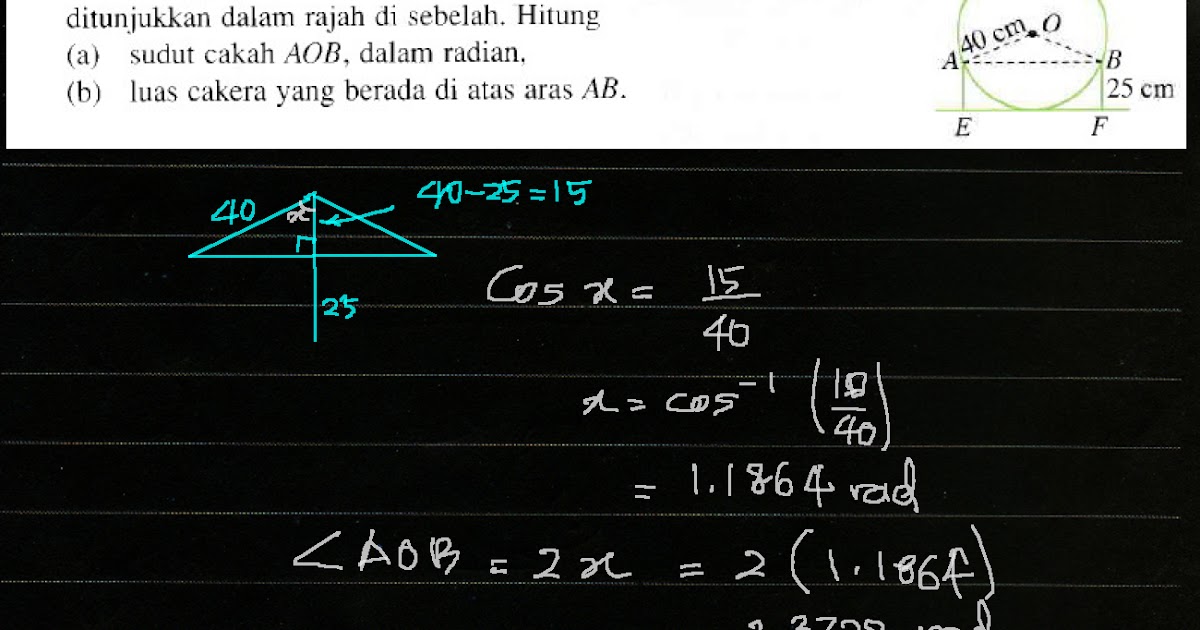 ditunjukkan dalam rajah di sebelah. Hitung
(a) sudut cakah AOB, dalam radian,
(b) luas cakera yang berada di atas aras AB.
40 cm
O
A
B
25 cm
E
F
40
x
40-25=15
25
Cos x = 15/40
x = cos⁻¹ (15/40)
= 1.1864 rad
∠AOB = 2x = 2(1.1864)